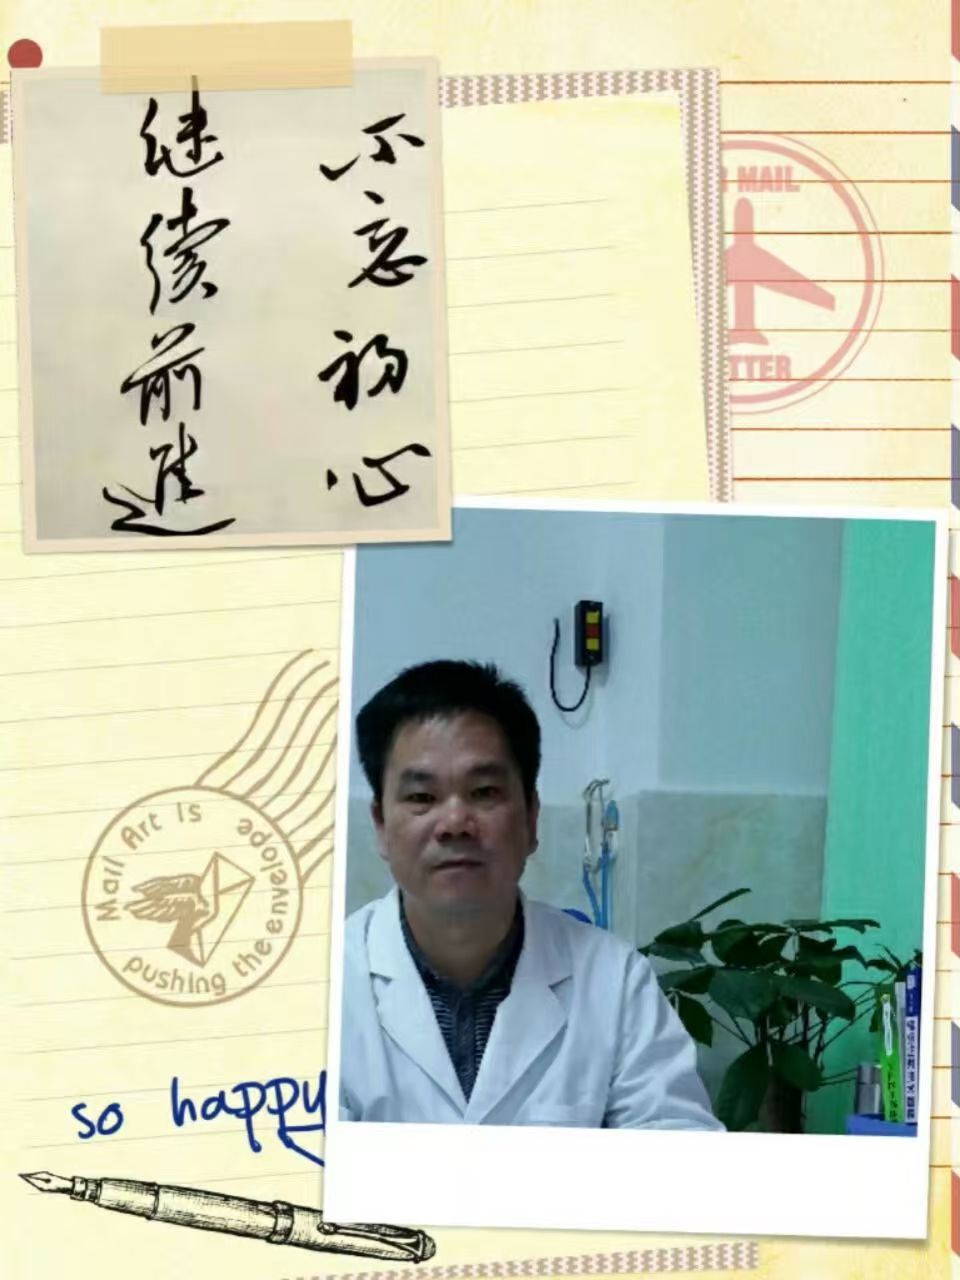 不忘初心
继续前進
MAIL
TTER
Mail Art is adolope
pushing the envel
so happy